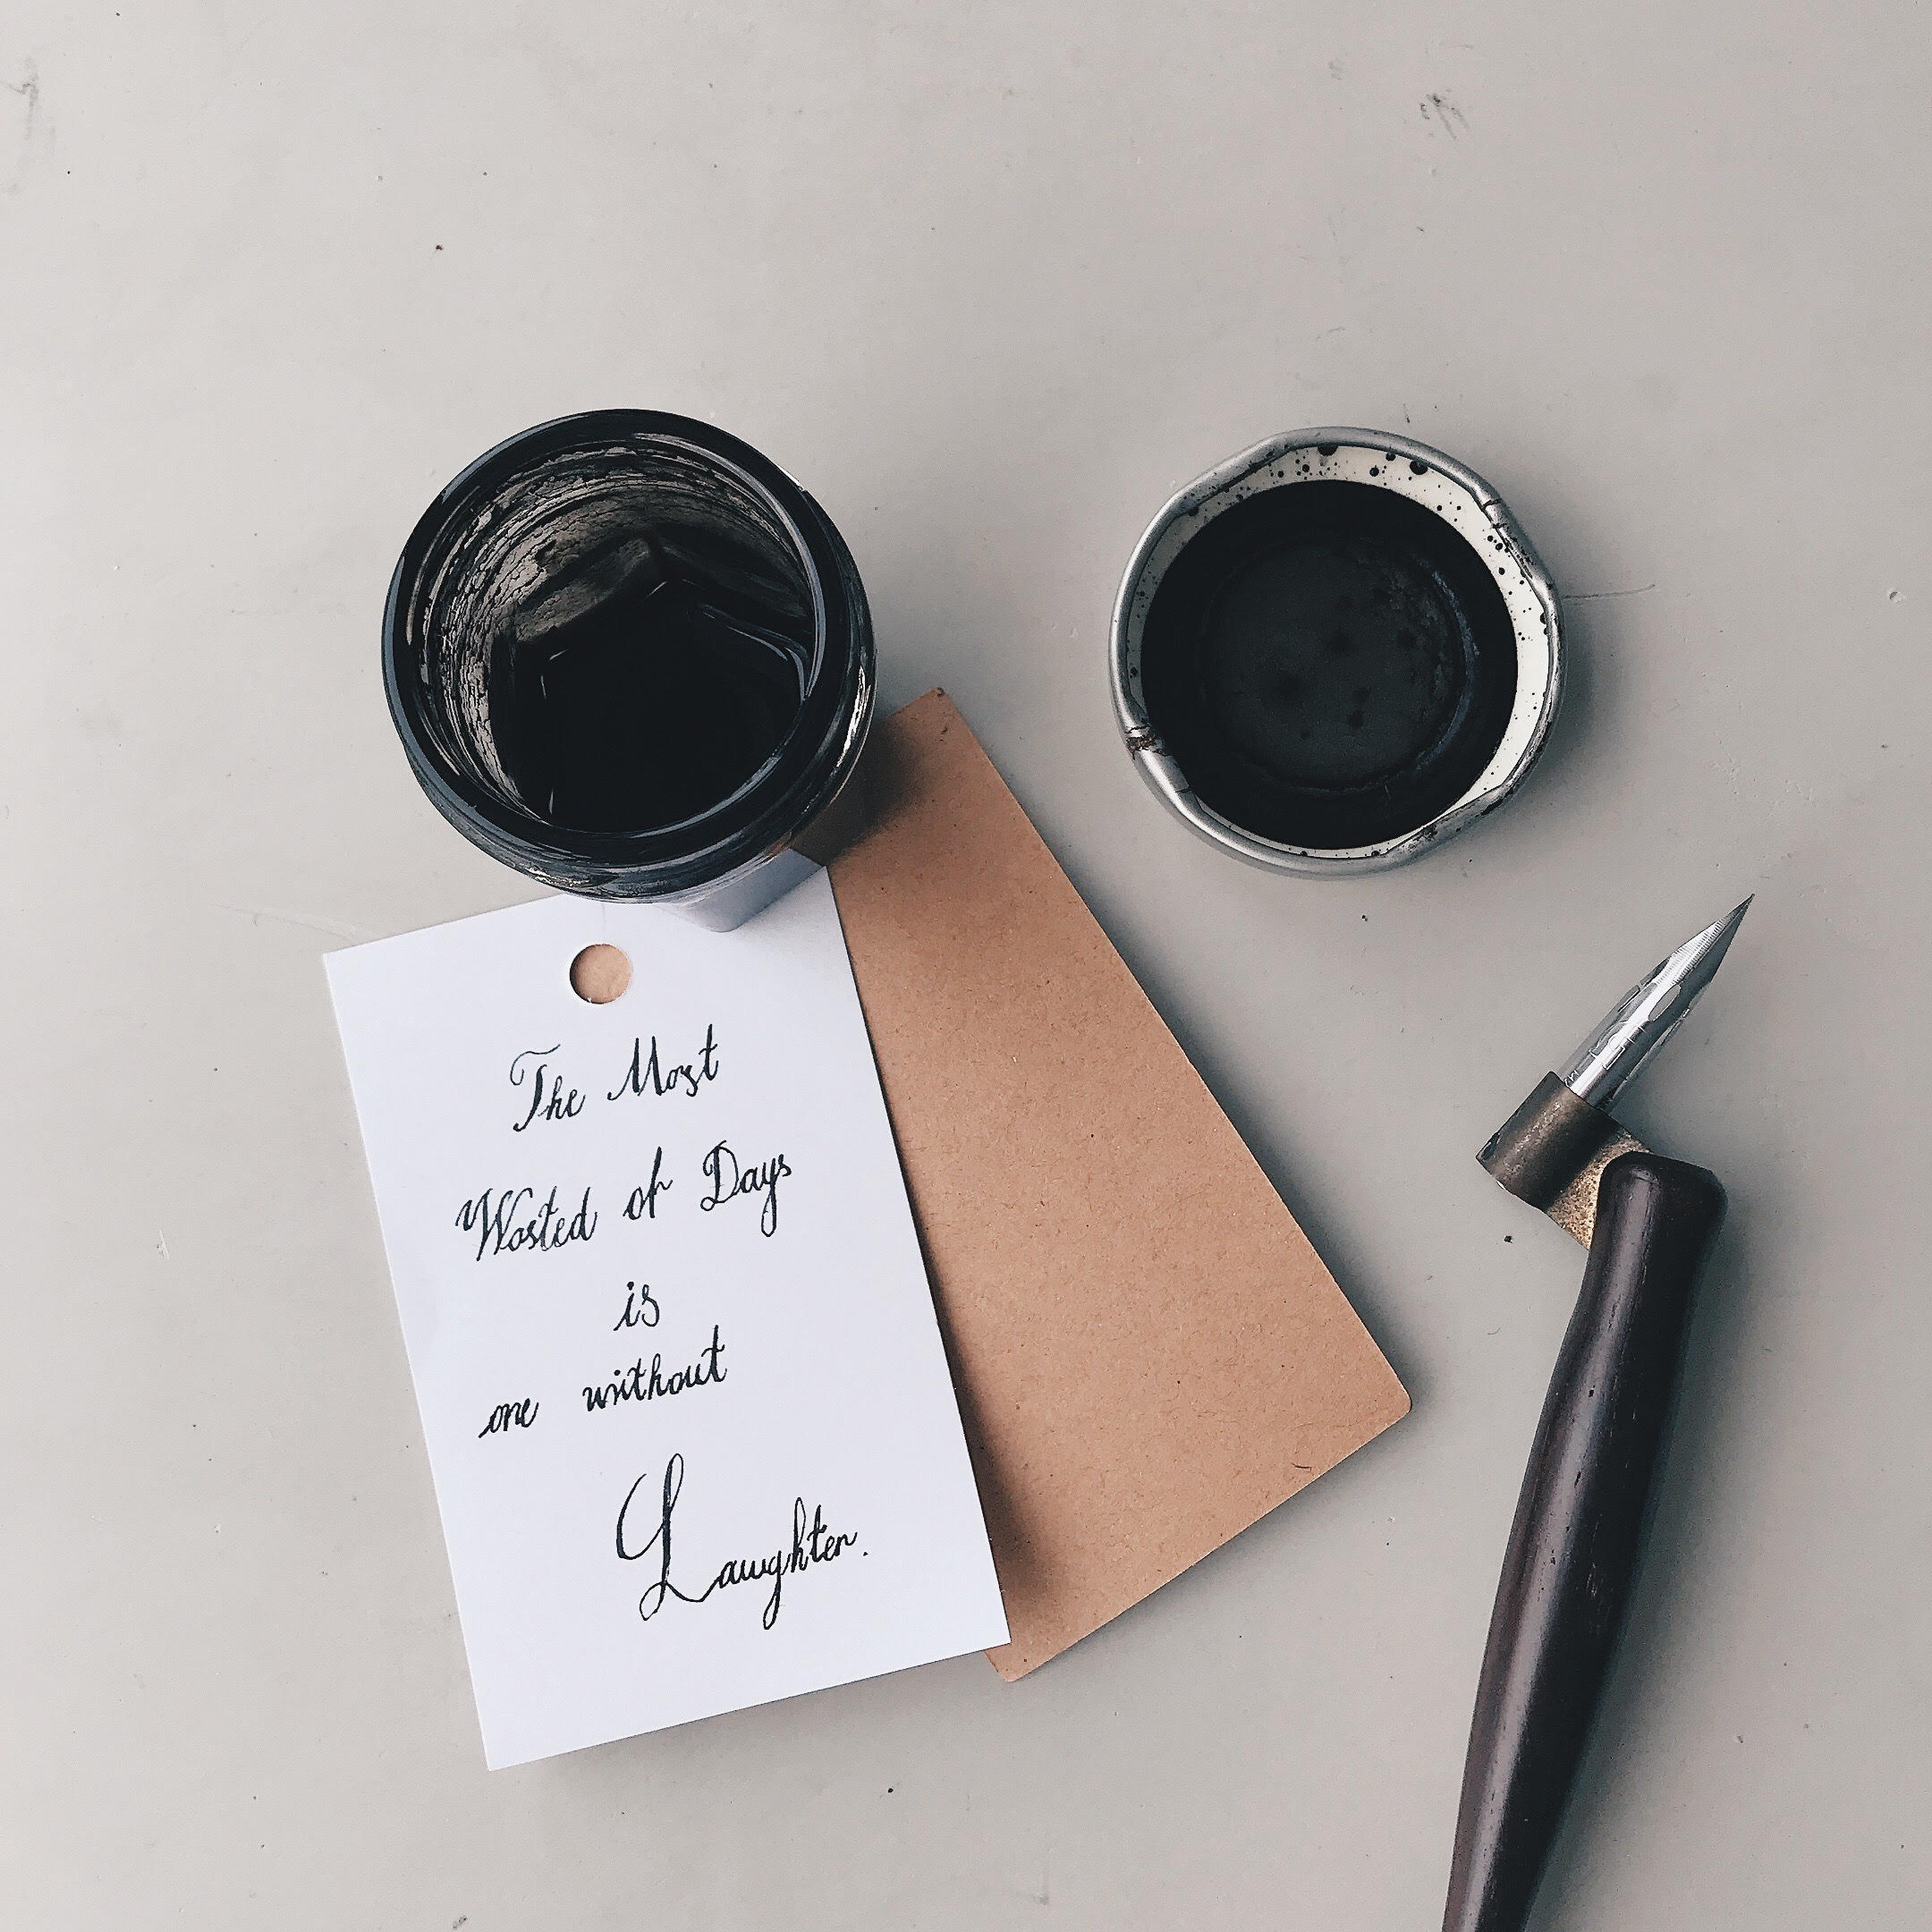 The Most
Wasted of Days
is
one without
Laughter.